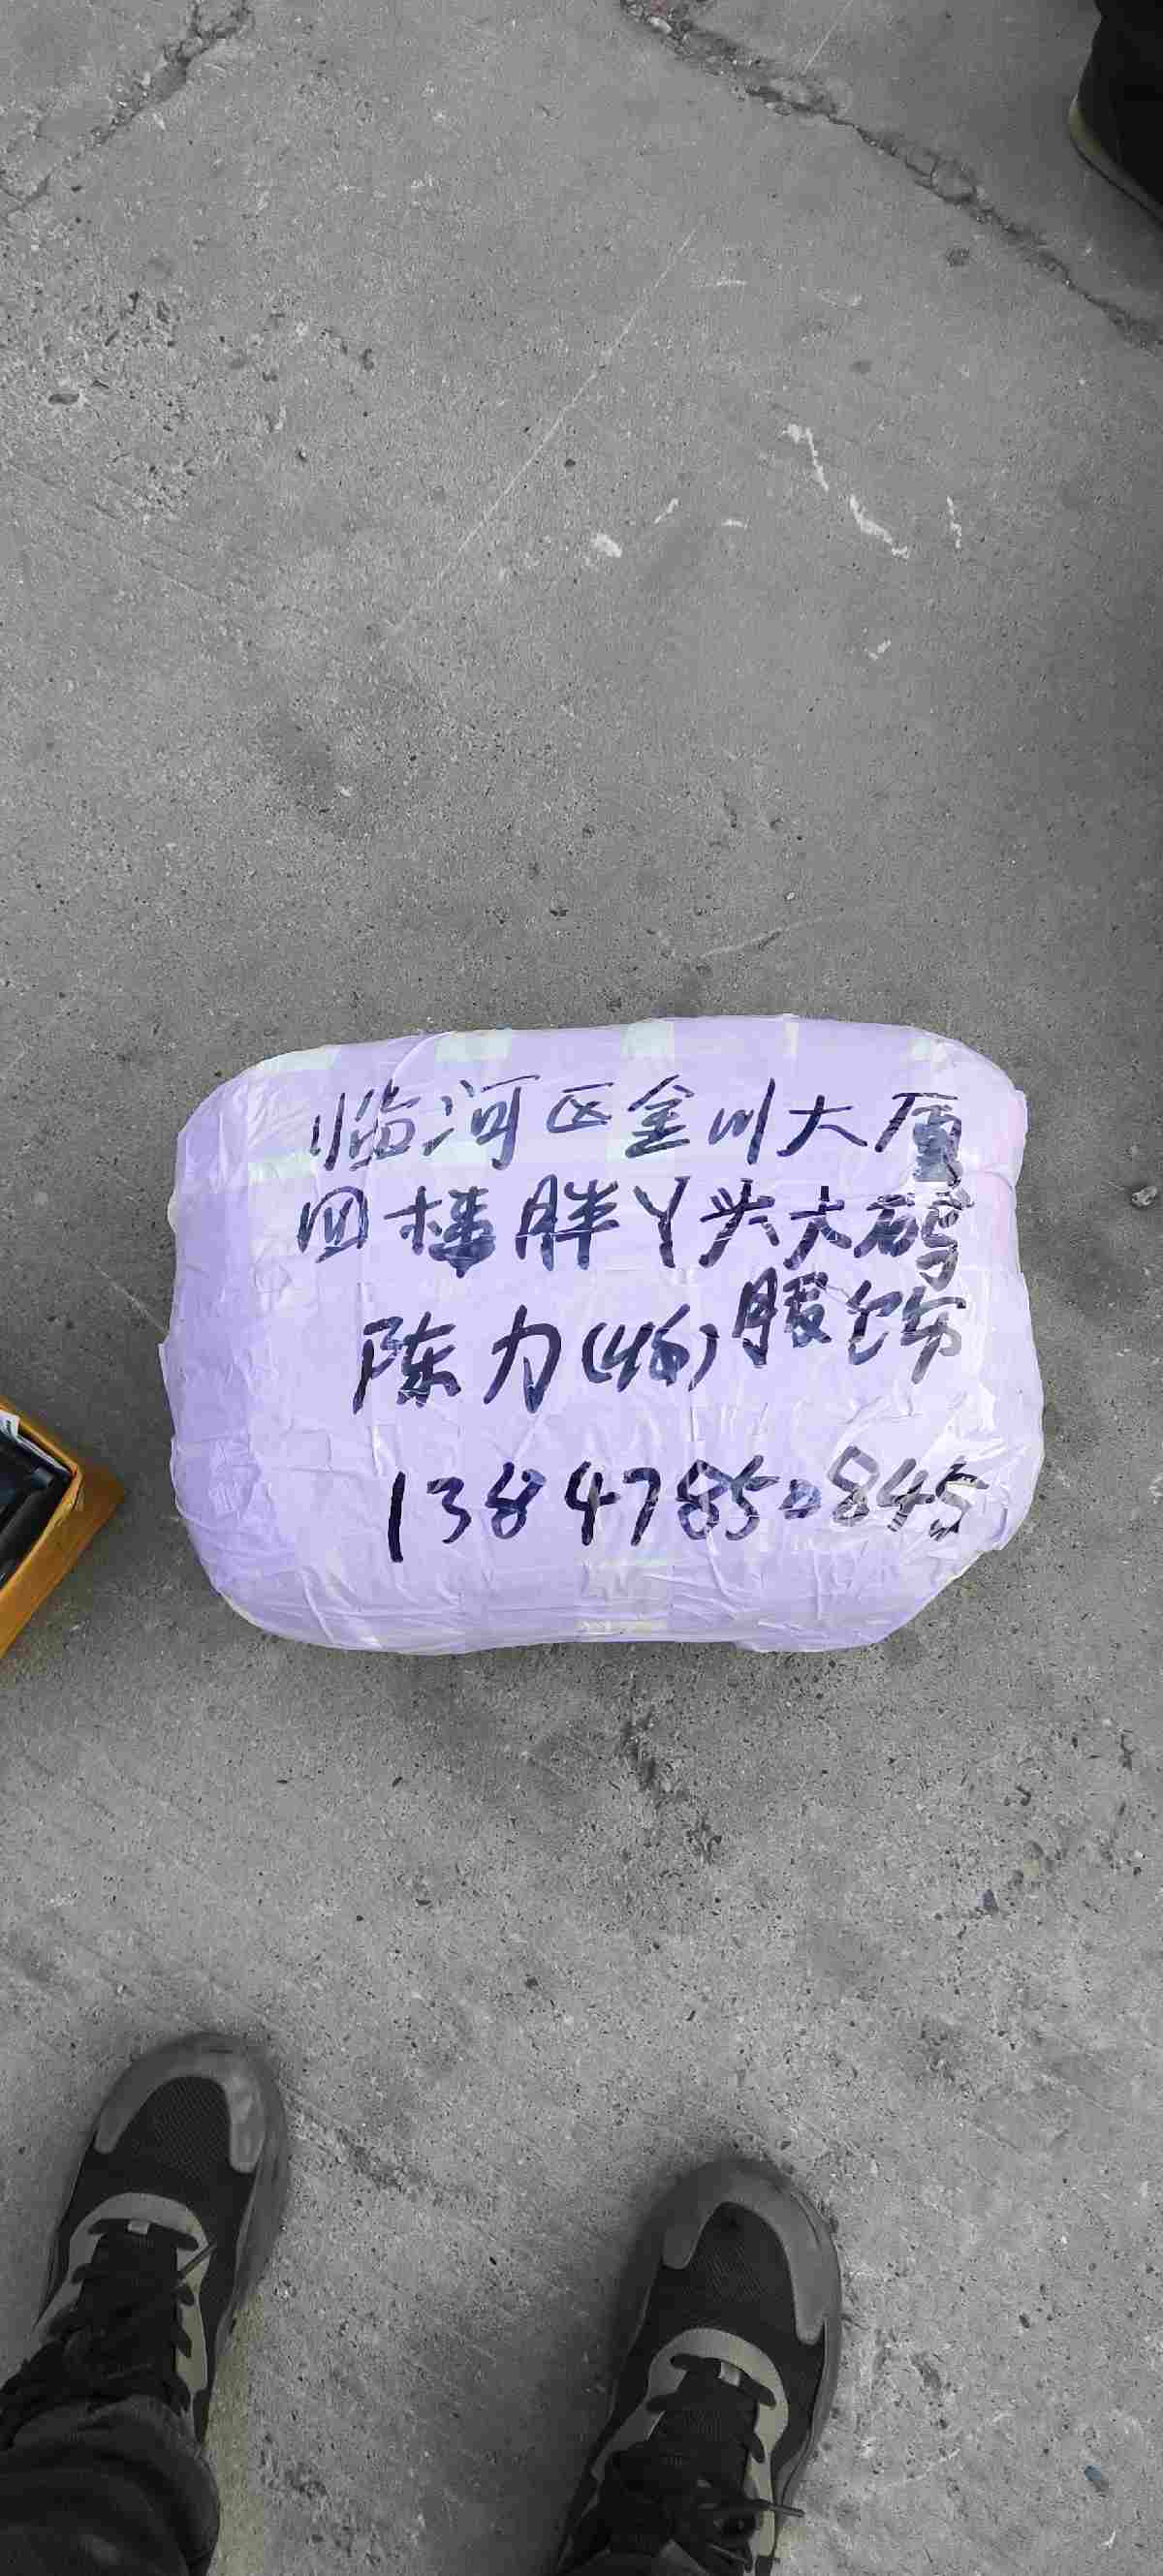 临河区金川大厦
四楼胖丫头大码
服饰
陈力(收)
13847850845